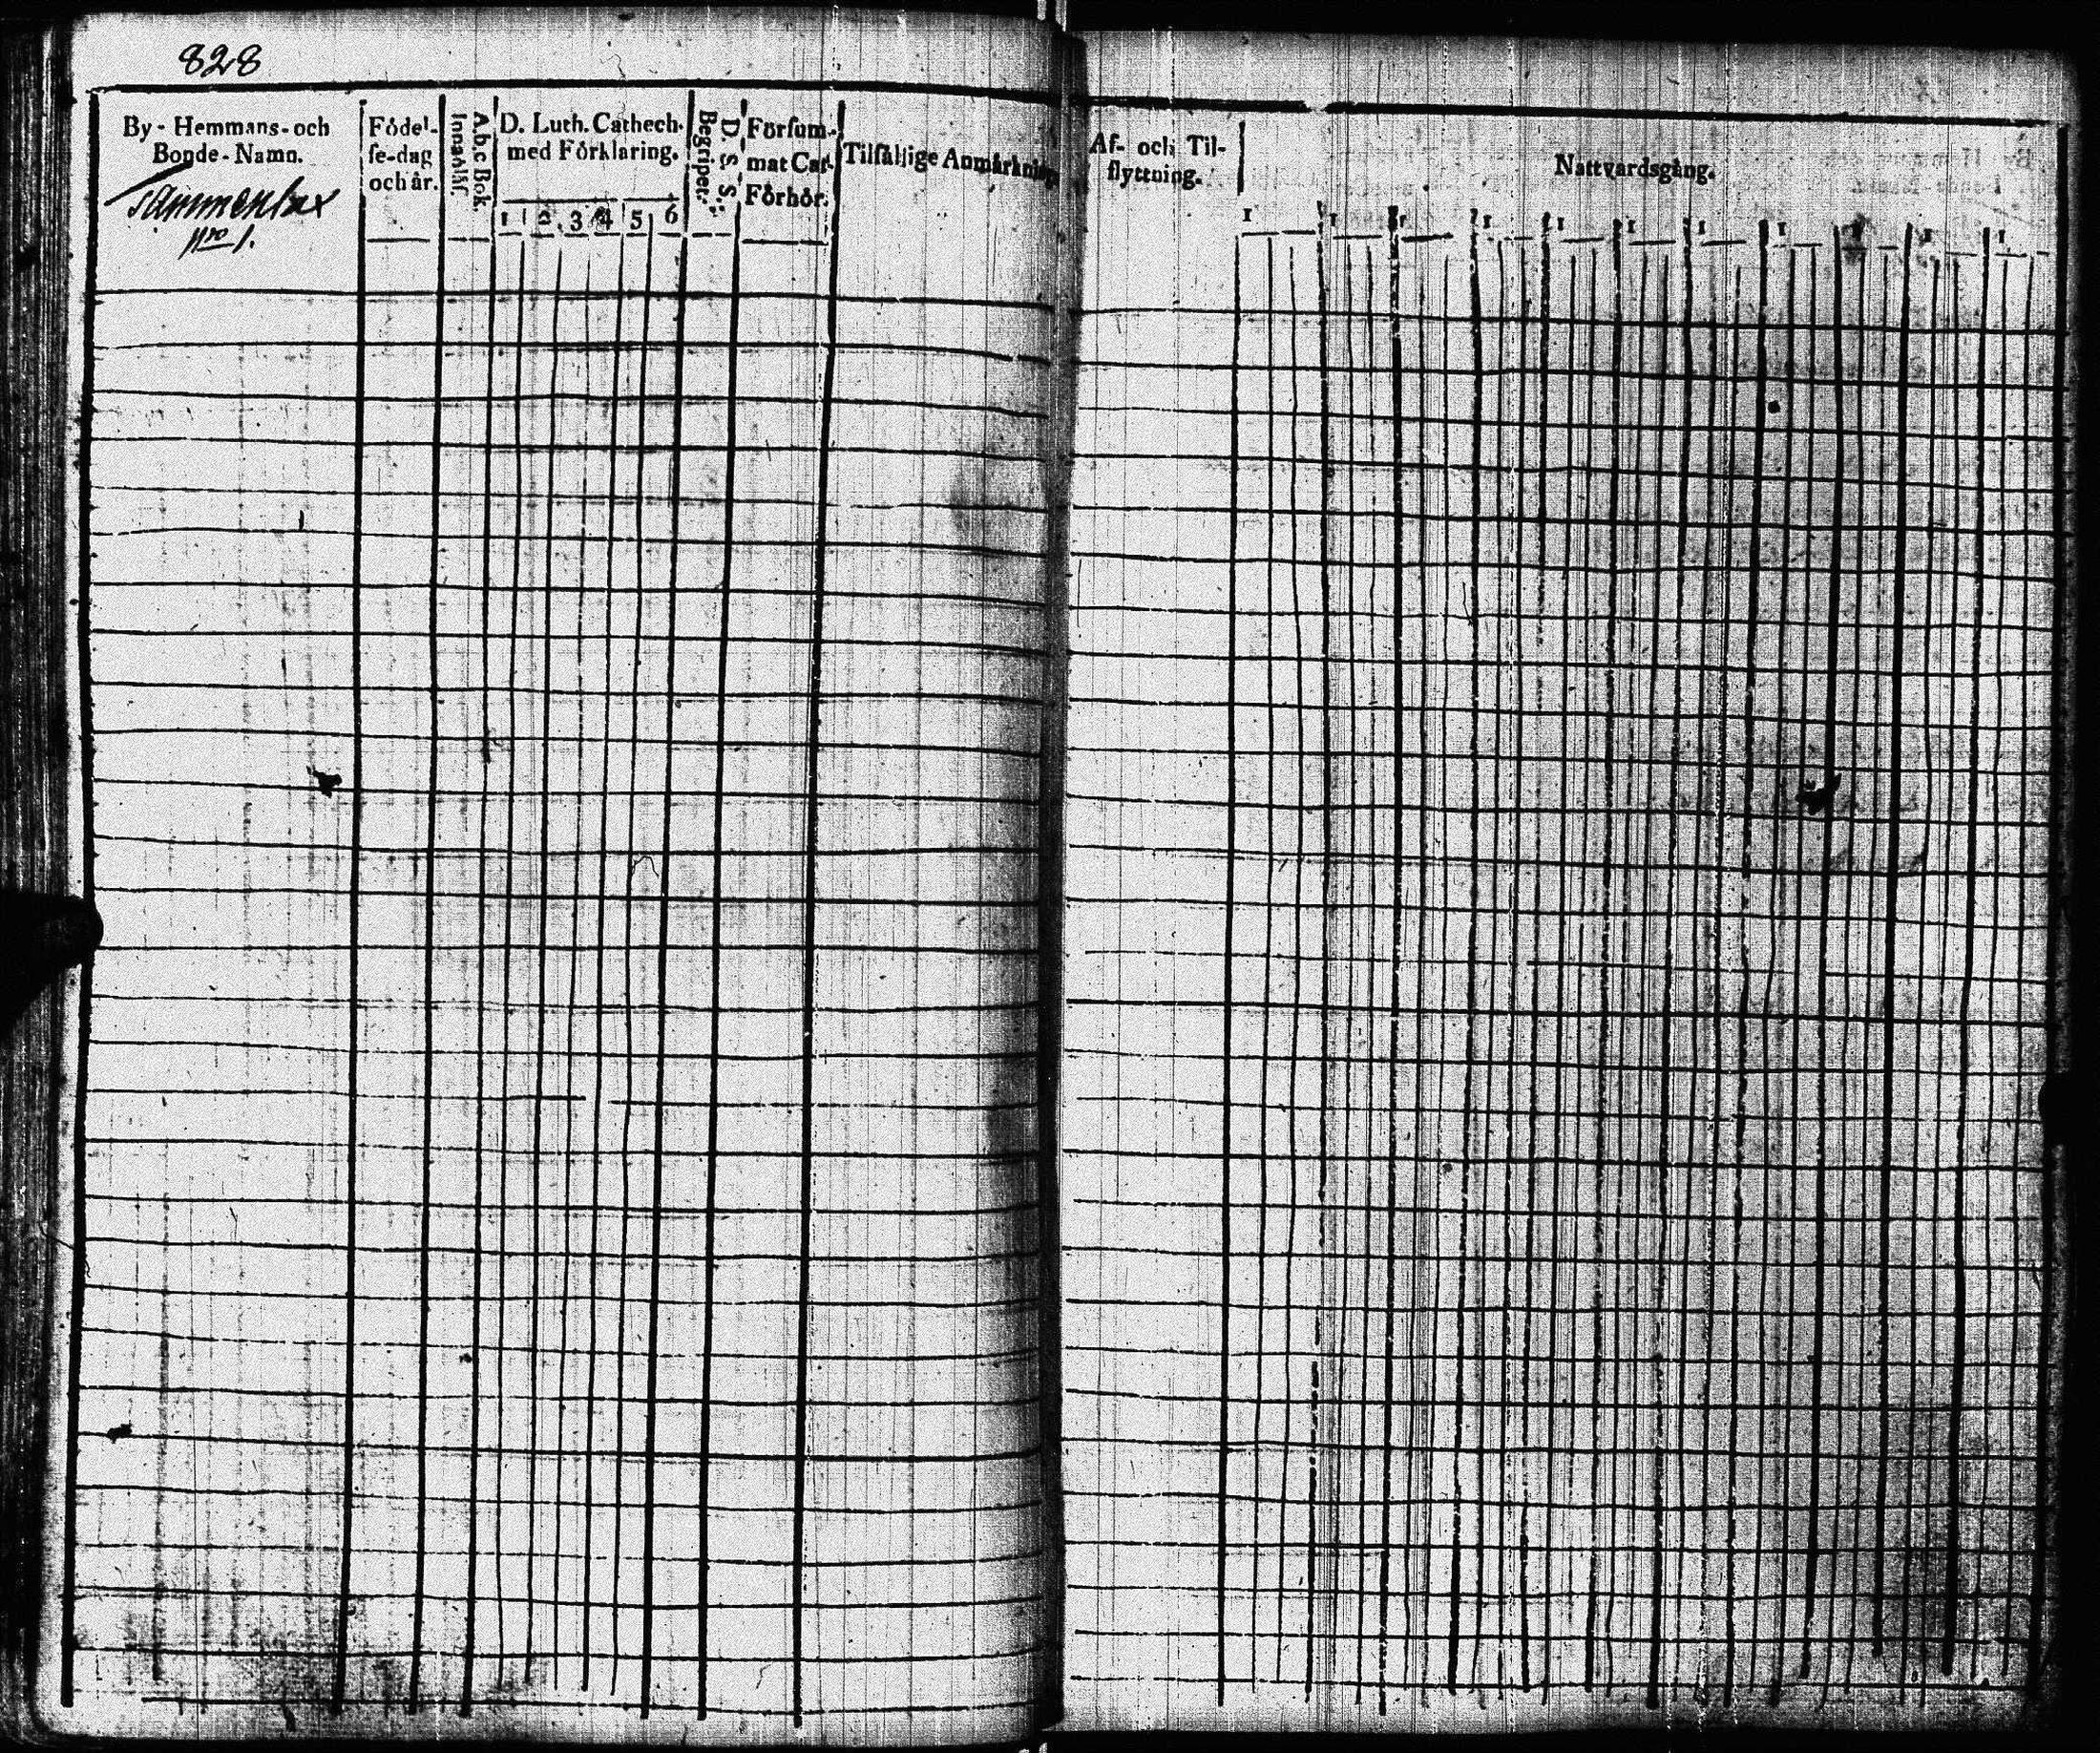 828
By- Hemmans- och
Bonde-Namn.
Sammenlax
Nro 1.
Födel-
se-dag
och år.
A.b.c Bok.
Innanläs.
D. Luth. Cathech.
med Förklaring.
1 2 3 4 5 6
D. S. S.
Begriper.
Försum-
mat Cat.
Förhör.
Tilfällige Anmärkning
Af- och Til-
flyttning.
Nattvardsgång.
1 1 1 1 1 1 1 1 1 1 1